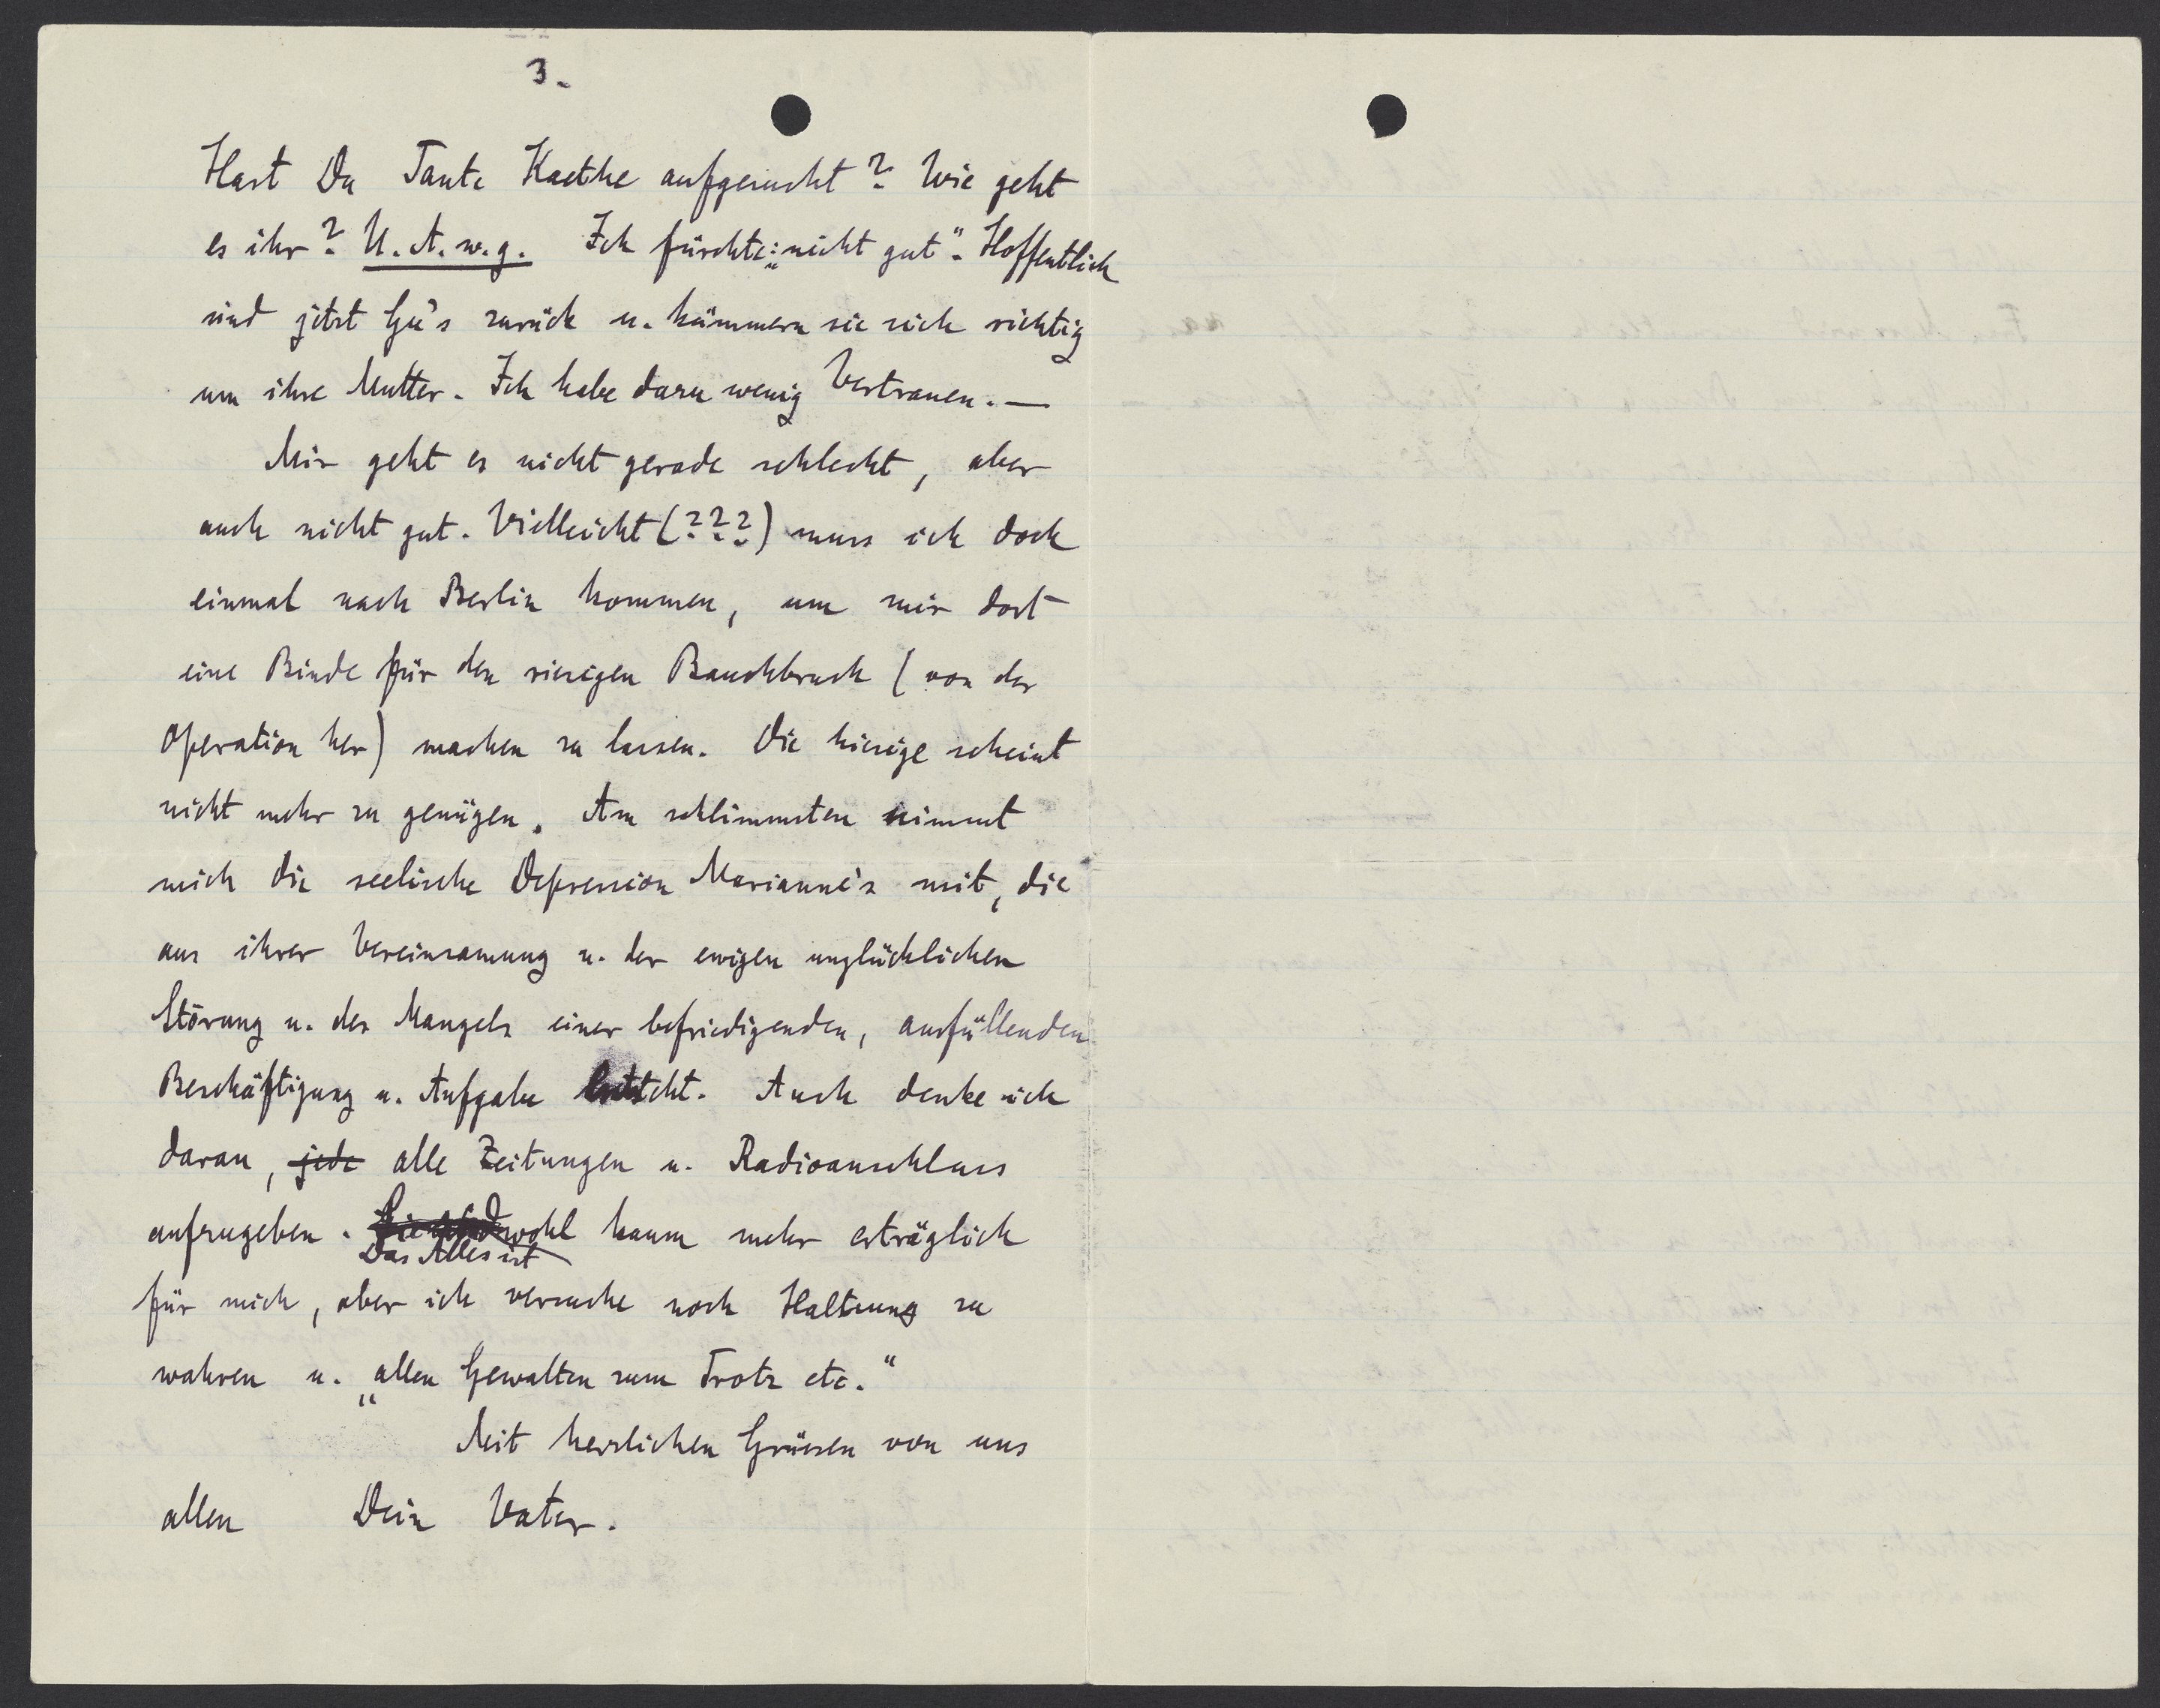 3.
Hast Du Tante Kaethe aufgesucht? Wie geht
es ihr? U. A. w. g. Ich fürchte: „nicht gut“. Hoffentlich
sind jetzt Gü's zurück u. kümmern sie sich richtig
um ihre Mutter. Ich habe dazu wenig Vertrauen. —
Mir geht es nicht gerade schlecht, aber
auch nicht gut. Vielleicht (???) muss ich doch
einmal nach Berlin kommen, um mir dort
eine Binde für den riesigen Bauchbruch (von der
Operation her) machen zu lassen. Die hiesige scheint
nicht mehr zu genügen. Am schlimmsten nimmt
mich die seelische Depression Marianne's mit, die
aus ihrer Vereinsamung u. der ewigen unglücklichen
Störung u. des Mangels einer befriedigenden, ausfüllenden
Beschäftigung u. Aufgabe entsteht. Auch denke ich
daran, jede alle Zeitungen u. Radioanschluss
aufzugeben. wohl kaum mehr erträglich
Das Alles ist
für mich, aber ich versuche noch Haltung zu
wahren u. „allen Gewalten zum Trotz etc.“
Mit herzlichen Grüssen von uns
allen Dein Vater.